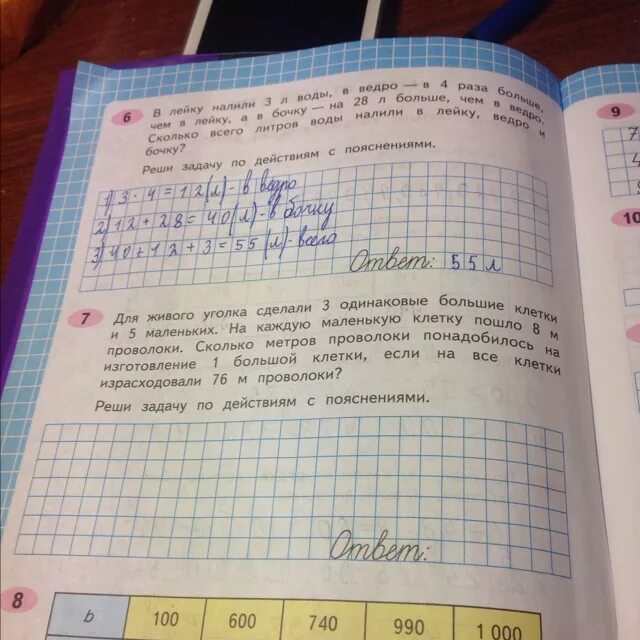 6 В лейку налили 3 л воды, в ведро — в 4 раза больше,
чем в лейку, а в бочку — на 28 л больше, чем в ведро.
Сколько всего литров воды налили в лейку, ведро и
бочку?
Реши задачу по действиям с пояснениями.
1) 3 · 4 = 12 (л) - в ведро
2) 12 + 28 = 40 (л) - в бочку
3) 40 + 12 + 3 = 55 (л) - всего
Ответ: 55 л
7 Для живого уголка сделали 3 одинаковые большие клетки
и 5 маленьких. На каждую маленькую клетку пошло 8 м
проволоки. Сколько метров проволоки понадобилось на
изготовление 1 большой клетки, если на все клетки
израсходовали 76 м проволоки?
Реши задачу по действиям с пояснениями.
Ответ:
8
b 100 600 740 990 1 000
9
7
4
10